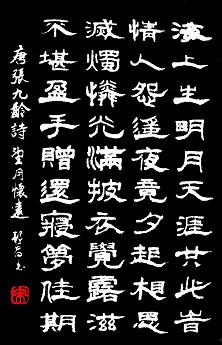 海上生明月天涯共此旹
情人怨遙夜竟夕起相思
滅燭憐光滿披衣覺露滋
不堪盈手贈還寢夢佳期
唐張九齡詩望月懷遠